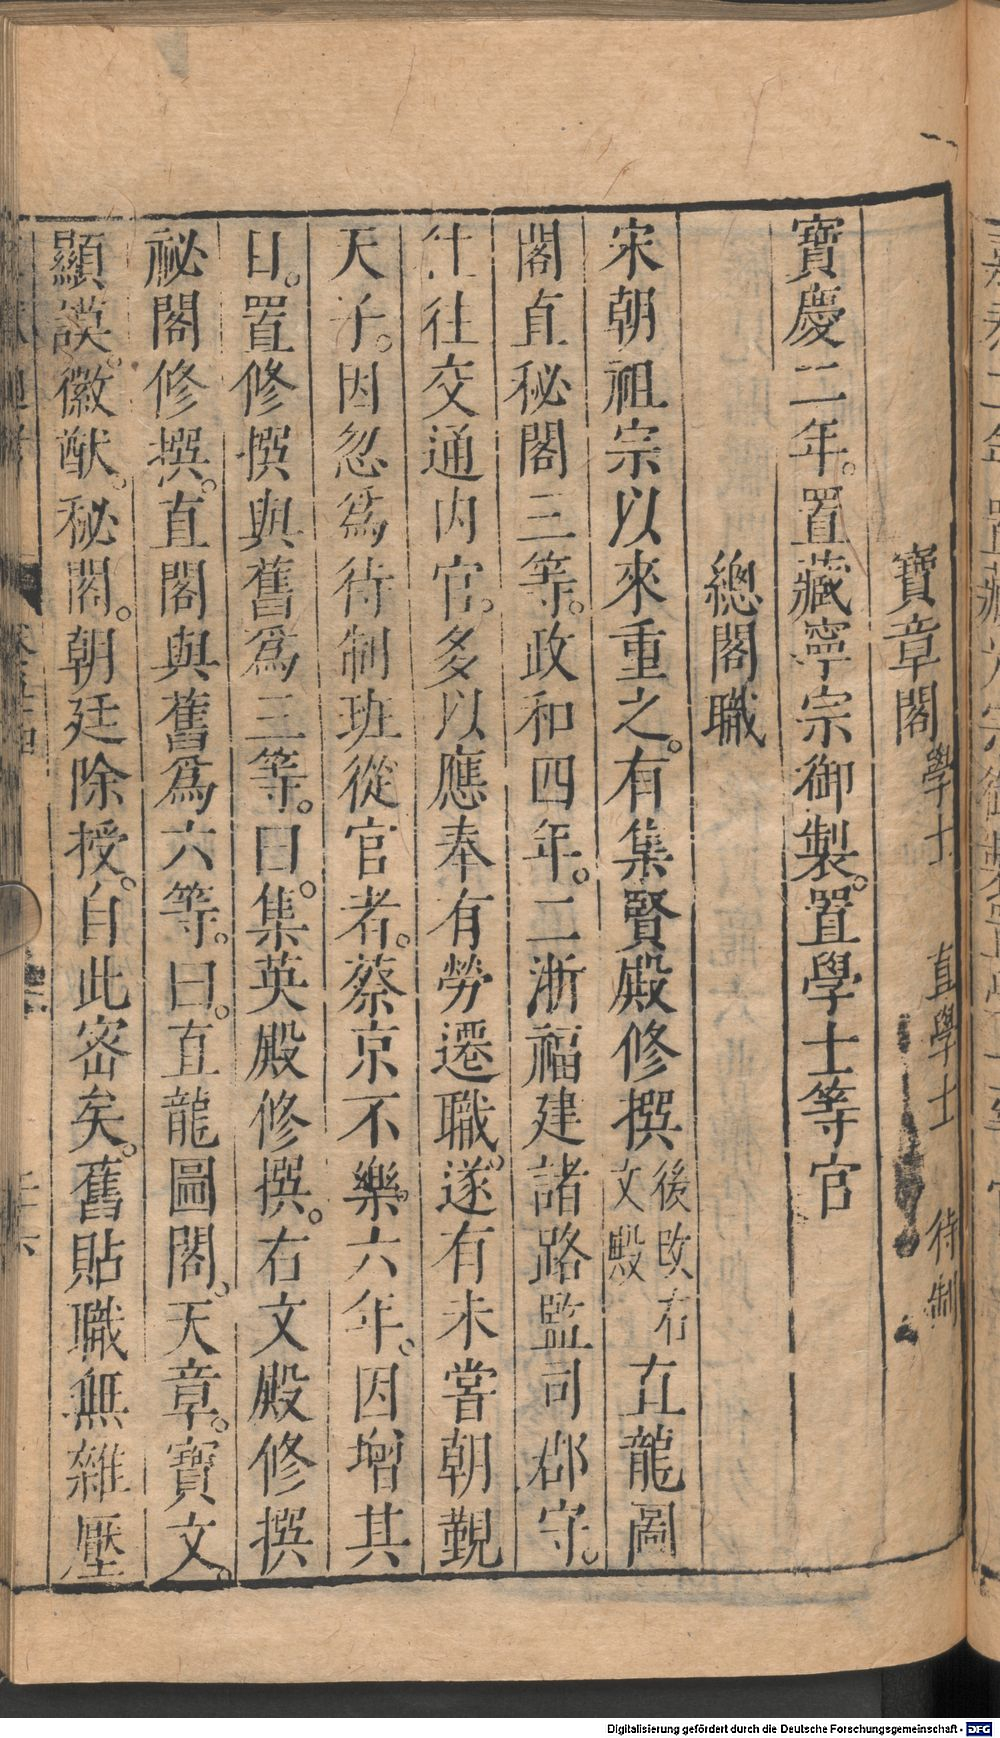 寶章閣學士 直學士 待制
寶慶二年。置藏寧宗御製。置學士等官
總閣職
宋朝祖宗以來重之。有集賢殿修撰後改右文殿直龍圖
閣直秘閣三等。政和四年。二浙福建諸路監司郡守。
往交通内官。多以應奉有勞遷職。遂有未嘗朝覲
天子。因忽爲待制班從官者。蔡京不樂。六年。因增其
日。置修撰與舊爲三等。曰。集英殿修撰。右文殿修撰
祕閣修撰。直閣與舊爲六等。曰。直龍圖閣、天章。寶文。
顯謨。徽猷。秘閣。朝廷除授。自此密矣。舊貼職無雜壓
Digitalisierung gefördert durch die Deutsche Forschungsgemeinschaft - DFG